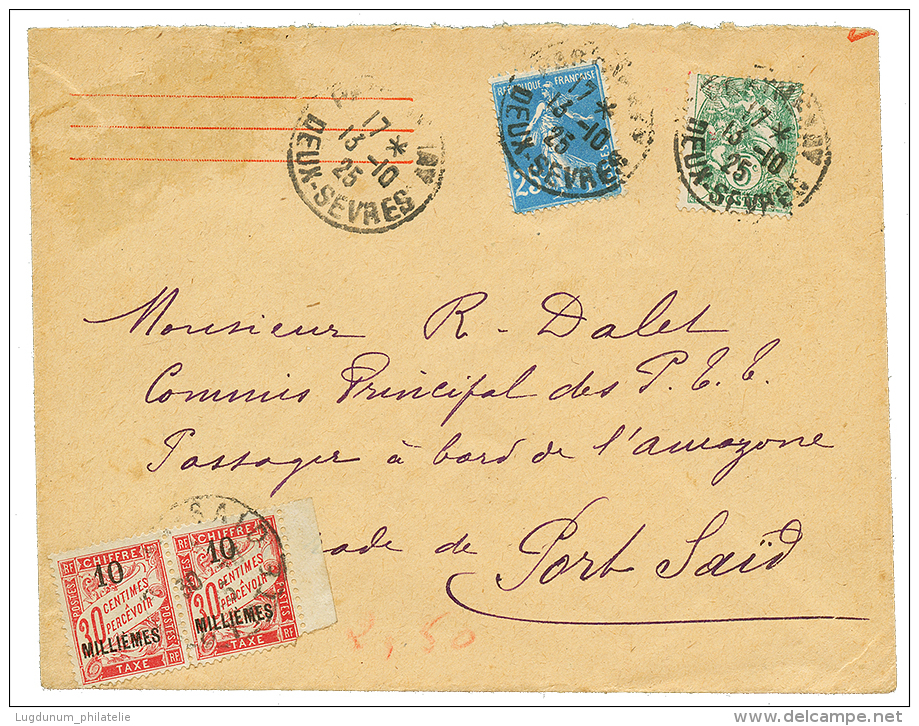 17 *
13 -10
25
DEUX-SEVRES
REPUBLIQUE FRANÇAISE
17 *
13 -10
25
DEUX-SEVRES
25
17 *
13 -10
25
DEUX-SEVRES
5
Monsieur R. Dalet
Commis Principal des P.T.T.
Passager à bord de l'Amazone
Rade de Port Saïd
SAID
30
RF CHIFFRE RF
10
POSTES
30 CENTIMES PERCEVOIR
MILLIÈMES
RF TAXE RF
RF CHIFFRE RF
10
POSTES
30 CENTIMES PERCEVOIR
MILLIÈMES
RF TAXE RF
2,50
Lugdunum_philatelie
www.delcampe.net